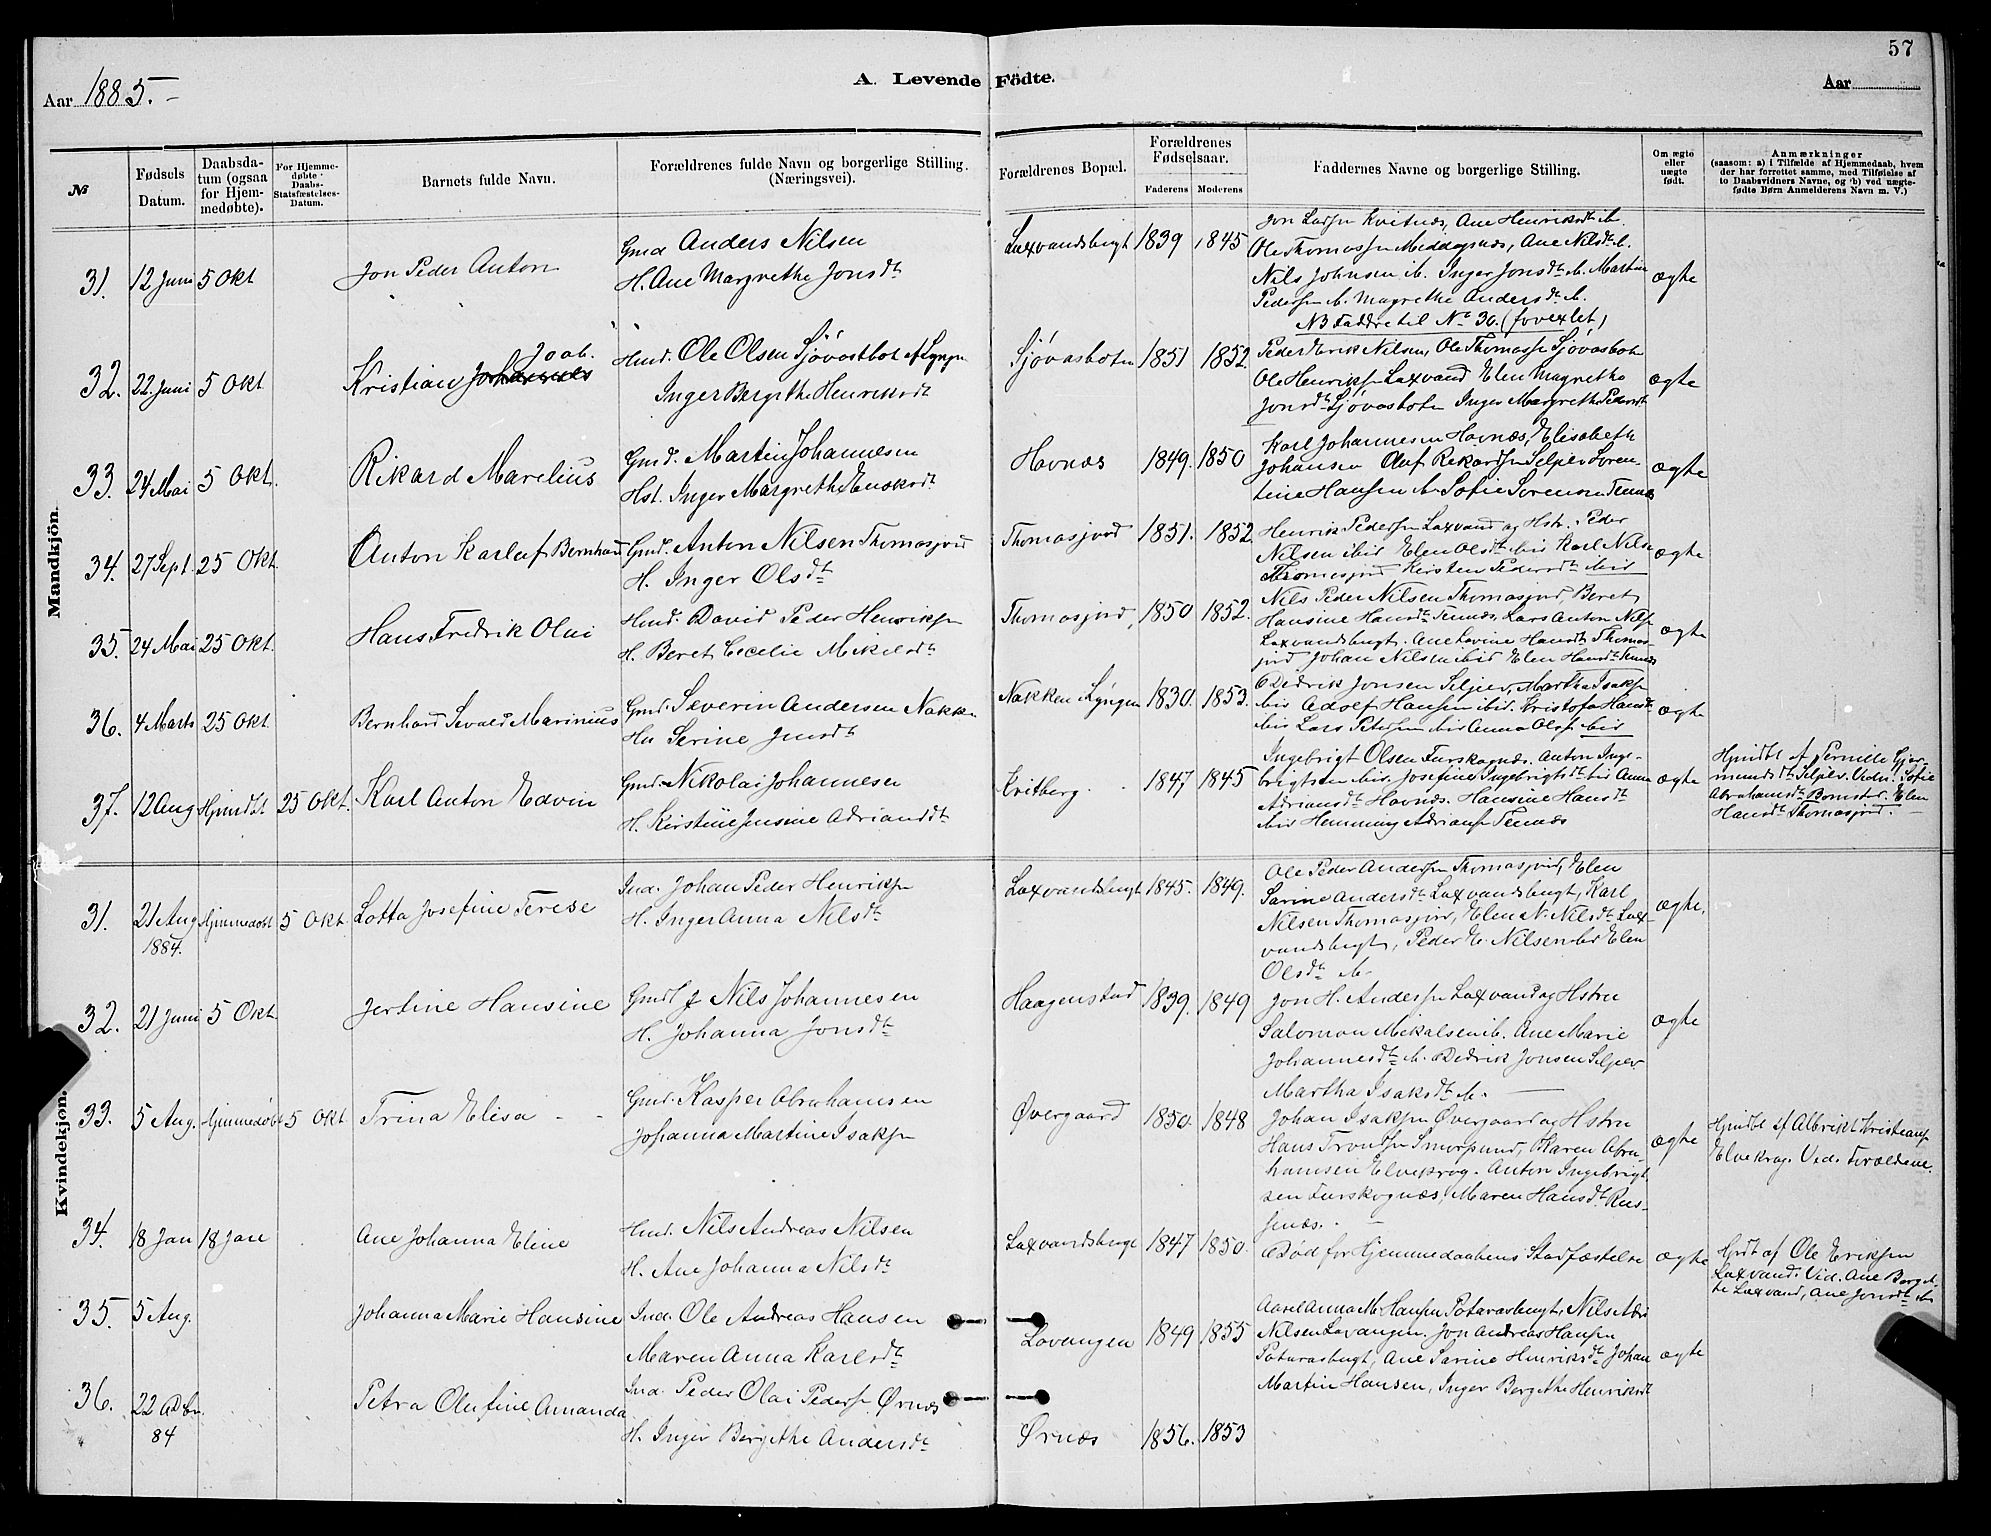 57
Aar 1885.-
A. Levende Födte.
Aar
№
Fødsels Datum.
Daabsdatum (ogsaa for Hjemmedøbte).
For Hjemmedøbte - Daabs-Statsfæstelses-Datum.
Barnets fulde Navn.
Forældrenes fulde Navn og borgerlige Stilling. (Næringsvei).
Forældrenes Bopæl.
Forældrenes Fødselsaar.
Faderens Moderens
Faddernes Navne og borgerlige Stilling.
Om ægte eller uægte født.
Anmærkninger
(saasom: a) i Tilfælde af Hjemmedaab, hvem
der har forrettet samme, med Tilføielse af
to Daabsvidners Navne, og b) ved uægte-
fødte Børn Anmelderens Navn m. V.)
Mandkjön.
31. 12 Juni 5 Okt Jon Peder Anton
Gmd Anders Nilsen
H. Ane Margrethe Jonsdt
Laxvandsbugt 1839 1845
Jon Larsen Kvitnæs, Ane Henriksdt ib.
Ole Thomassen Meddagsnæs, Ane Nilsdt ib.
Nils Johnsen ib. Inger Jonsdt ib. Martin
Pedersen ib. Magrethe Andersdt ib.
NB Faddre til No 30. (forvexlet)
ægte
32. 22. Juni 5 Okt Kristian Johannes Joab.
Hmd. Ole Olsen Sjövasbot af Lyngen
Inger Bergithe Henriksdt
Sjövasboten 1851 1852.
Peder Henrik Nilsen, Ole Thomass Sjövasbotn
Ole Henriksen Laxvand Elen Magrethe
Jonsdt Sjövasbotn Inger Margrethe Pedersdt
ægte
33. 24 Mai 5 Okt. Rikard Marelius
Gmd. Martin Johannesen
Hst. Inger Margrethe Enoksdt.
Havnæs 1849. 1850
Karl Johannesen Havnæs, Elisabeth
Johansen Oluf Rekardsen Seljelv Soren-
tine Hansen ib. Sofie Sørensen Tennæs
ægte
34. 27 Sept. 25 Okt. Anton Karluf Bernhard
Gmd. Anton Nilsen Thomasjord
H. Inger Olsdt
Thomasjord 1851. 1852
Henrik Pedersen Laxvand og Hstr. Peder
Nilsen ibid Elen Olsdt ibid Karl Nilsen
Thomasjord Kirsten Pedersdt ibid
ægte
35. 24 Mai 25 Okt. Hans Fredrik Olai
Hmd. David Peder Henriksen
H. Beret Cecelie Mikelsdt
Thomasjord, 1850 1852.
Nils Peder Nilsen Thomasjord Beret
Hansine Hansdt Tennæs. Lars Anton Nilsen
Laxvandsbugt. Ane Lovine Hansdt Thomas-
jord Johan Nilsen ibid Elen Hansdt Tennæs
ægte
36. 4 Marts 25 Okt Bernhard Sevald Marinius
Gmd. Severin Andersen Nakken
Hu Serine Jensdt
Nakken Lyngen 1830. 1853.
Didrik Jonsen Seljelv, Martha Isaksen
ibid Adolf Hansen ibid. Kristofa Hansdt
ibid Lars Petersen ibid Anna Olsen ibid
ægte
37. 12 Aug Hjmdbt 25 Okt. Karl Anton Edvin
Gmd. Nikolai Johannesen
H. Kirstine Jensine Adriansdt
Kvitberg. 1847 1845
Ingebrigt Olsen Furskognæs. Anton Inge-
brigtsen ibid. Josefine Ingebrigtsdt ibid Anna
Adriansdt Havnæs. Hansine Hansdt
ibid Hemming Adriansen Tennæs
ægte
Hjmdbt af Pernille Gjer-
mundsdt Seljelv. Vidn. Sofie
Abrahamsdt Bomstad. Elen
Hansdt Thomasjord.
Kvindekjön.
31. 21 Aug 1884. Hjemmedøbt 5 Okt. Lotta Josefine Terese
Ind. Johan Peder Henriksen
H. Inger Anna Nilsdt
Laxvandsbugt 1845. 1849.
Ole Peder Andersen Thomasjord, Elen
Sarine Andersdt Laxvandsbugt, Karl
Nilsen Thomasjord, Elen N. Nilsdt Lax-
vandsbugt, Peder E. Nilsen ibd Elen
Olsdt ib.
ægte.
32. 21 Juni 5 Okt. Jertine Hansine
Gmd Nils Johannesen
H. Johanna Jonsdt
Haagenstad 1839. 1849
Jon H. Andersen Laxvand og Hstru
Salomon Mikalsen ib. Ane Marie
Johannesdt ib. Didrik Jonsen Seljelv
Martha Isaksdt ib.
ægte
33. 5 Aug. Hjemmedøbt 5 Okt Trina Elisa
Gmd. Kasper Abrahamsen
Johanna Martine Isaksen
Øvergaard 1850. 1848
Johan Isaksen Øvergaard og Hstru
Hans Trondsen Smørsund, Karen Abra-
hamsen Elvekrog. Anton Ingebrigt
sen Furskognæs, Maren Hansdt Rus-
snæs.
ægte
Hjmdbt af Albrikt Kristians
Elvekrog. Vid. Forældrene.
34. 18 Jan 18 Jan Ane Johanna Eline
Hmd. Nils Andreas Nilsen
H. Ane Johanna Nilsdt
Laxvandsbugt 1847 1850.
Død før Hjemmedaabens Stadfæstelse
ægte
Hjdt af Ole Eriksen
Laxvand. Vid. Ane Bergit-
te Laxvand, Ane Jonsdt ib
35. 5 Aug. Johanna Marie Hansine
Ind. Ole Andreas Hansen
Maren Anna Karlsdt
Lavangen 1849 1855
Aarel Anna M. Hansen Potarasbugt, Nils Adri
Nilsen Lavangen. Jon Andreas Hansen
Potarasbugt, Ane Sarine Henriksdt Johan
Martin Hansen, Inger Bergethe Henriksdt
ægte
36. 22 Dcbr. 84 Petra Olufine Amanda
Ind. Peder Olai Pedersen Ørnæs
H. Inger Bergethe Andersdt
Ørnæs 1856. 1853